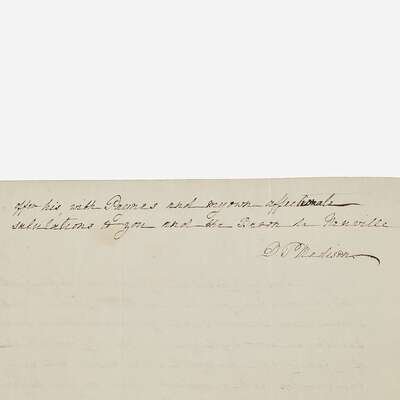 offer his with Paynes and my own affectionate
salutations to you and the Baron de Neuville
D P Madison